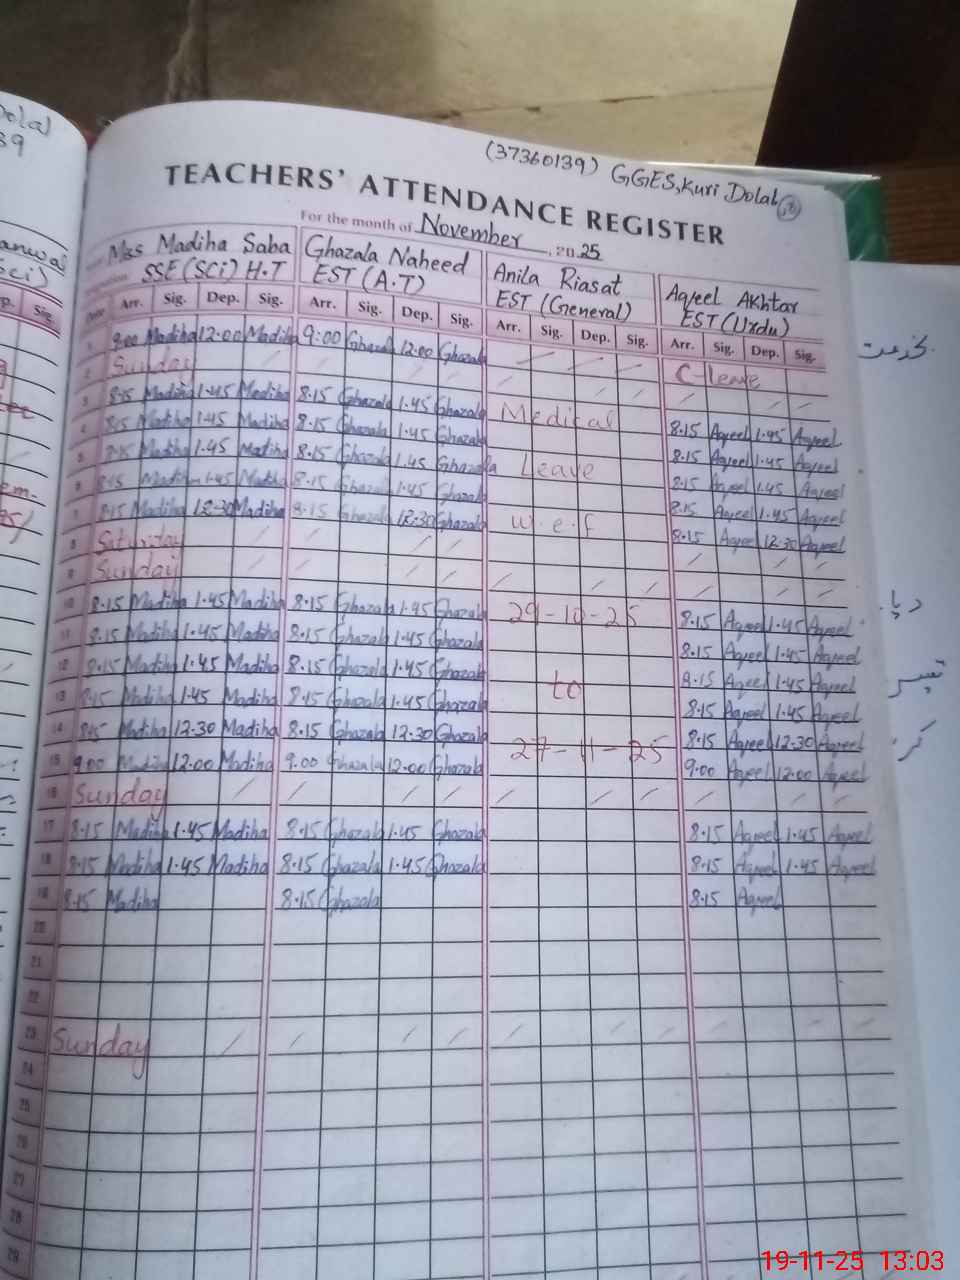 (37360139) GGES, Kuri Dolal
TEACHERS' ATTENDANCE REGISTER
For the month of November, 2025
Mrs Madiha Saba Ghazala Naheed Anila Riasat Aqeel Akhtar
SSE (Sci) H.T EST (A.T) EST (General) EST (Urdu)
Date Arr. Sig. Dep. Sig. Arr. Sig. Dep. Sig. Arr. Sig. Dep. Sig. Arr. Sig. Dep. Sig.
1 9.00 Madiha 12.00 Madiha 9:00 Ghazala 12.00 Ghazala C-leave
2 Sunday
3 8.15 Madiha 1.45 Madiha 8.15 Ghazala 1.45 Ghazala Medical 8.15 Aqeel 1.45 Aqeel
4 8.15 Madiha 1.45 Madiha 8.15 Ghazala 1.45 Ghazala 8.15 Aqeel 1.45 Aqeel
5 8.15 Madiha 1.45 Madiha 8.15 Ghazala 1.45 Ghazala Leave 8.15 Aqeel 1.45 Aqeel
6 8.15 Madiha 1.45 Madiha 8.15 Ghazala 1.45 Ghazala 8.15 Aqeel 1.45 Aqeel
7 8.15 Madiha 12.30 Madiha 8.15 Ghazala 12.30 Ghazala w.e.f 8.15 Aqeel 12.30 Aqeel
8 Saturday
9 Sunday
10 8.15 Madiha 1.45 Madiha 8.15 Ghazala 1.45 Ghazala 29-10-25 8.15 Aqeel 1.45 Aqeel
11 8.15 Madiha 1.45 Madiha 8.15 Ghazala 1.45 Ghazala 8.15 Aqeel 1.45 Aqeel
12 8.15 Madiha 1.45 Madiha 8.15 Ghazala 1.45 Ghazala 8.15 Aqeel 1.45 Aqeel
13 8.15 Madiha 1.45 Madiha 8.15 Ghazala 1.45 Ghazala to 8.15 Aqeel 1.45 Aqeel
14 8.15 Madiha 12.30 Madiha 8.15 Ghazala 12.30 Ghazala 8.15 Aqeel 12.30 Aqeel
15 9.00 Madiha 12.00 Madiha 9.00 Ghazala 12.00 Ghazala 27-11-25 9.00 Aqeel 12.00 Aqeel
16 Sunday
17 8.15 Madiha 1.45 Madiha 8.15 Ghazala 1.45 Ghazala 8.15 Aqeel 1.45 Aqeel
18 8.15 Madiha 1.45 Madiha 8.15 Ghazala 1.45 Ghazala 8.15 Aqeel 1.45 Aqeel
19 8.15 Madiha 8.15 Ghazala 8.15 Aqeel
20
21
22
23 Sunday
24
25
26
27
28
29
19-11-25 13:03